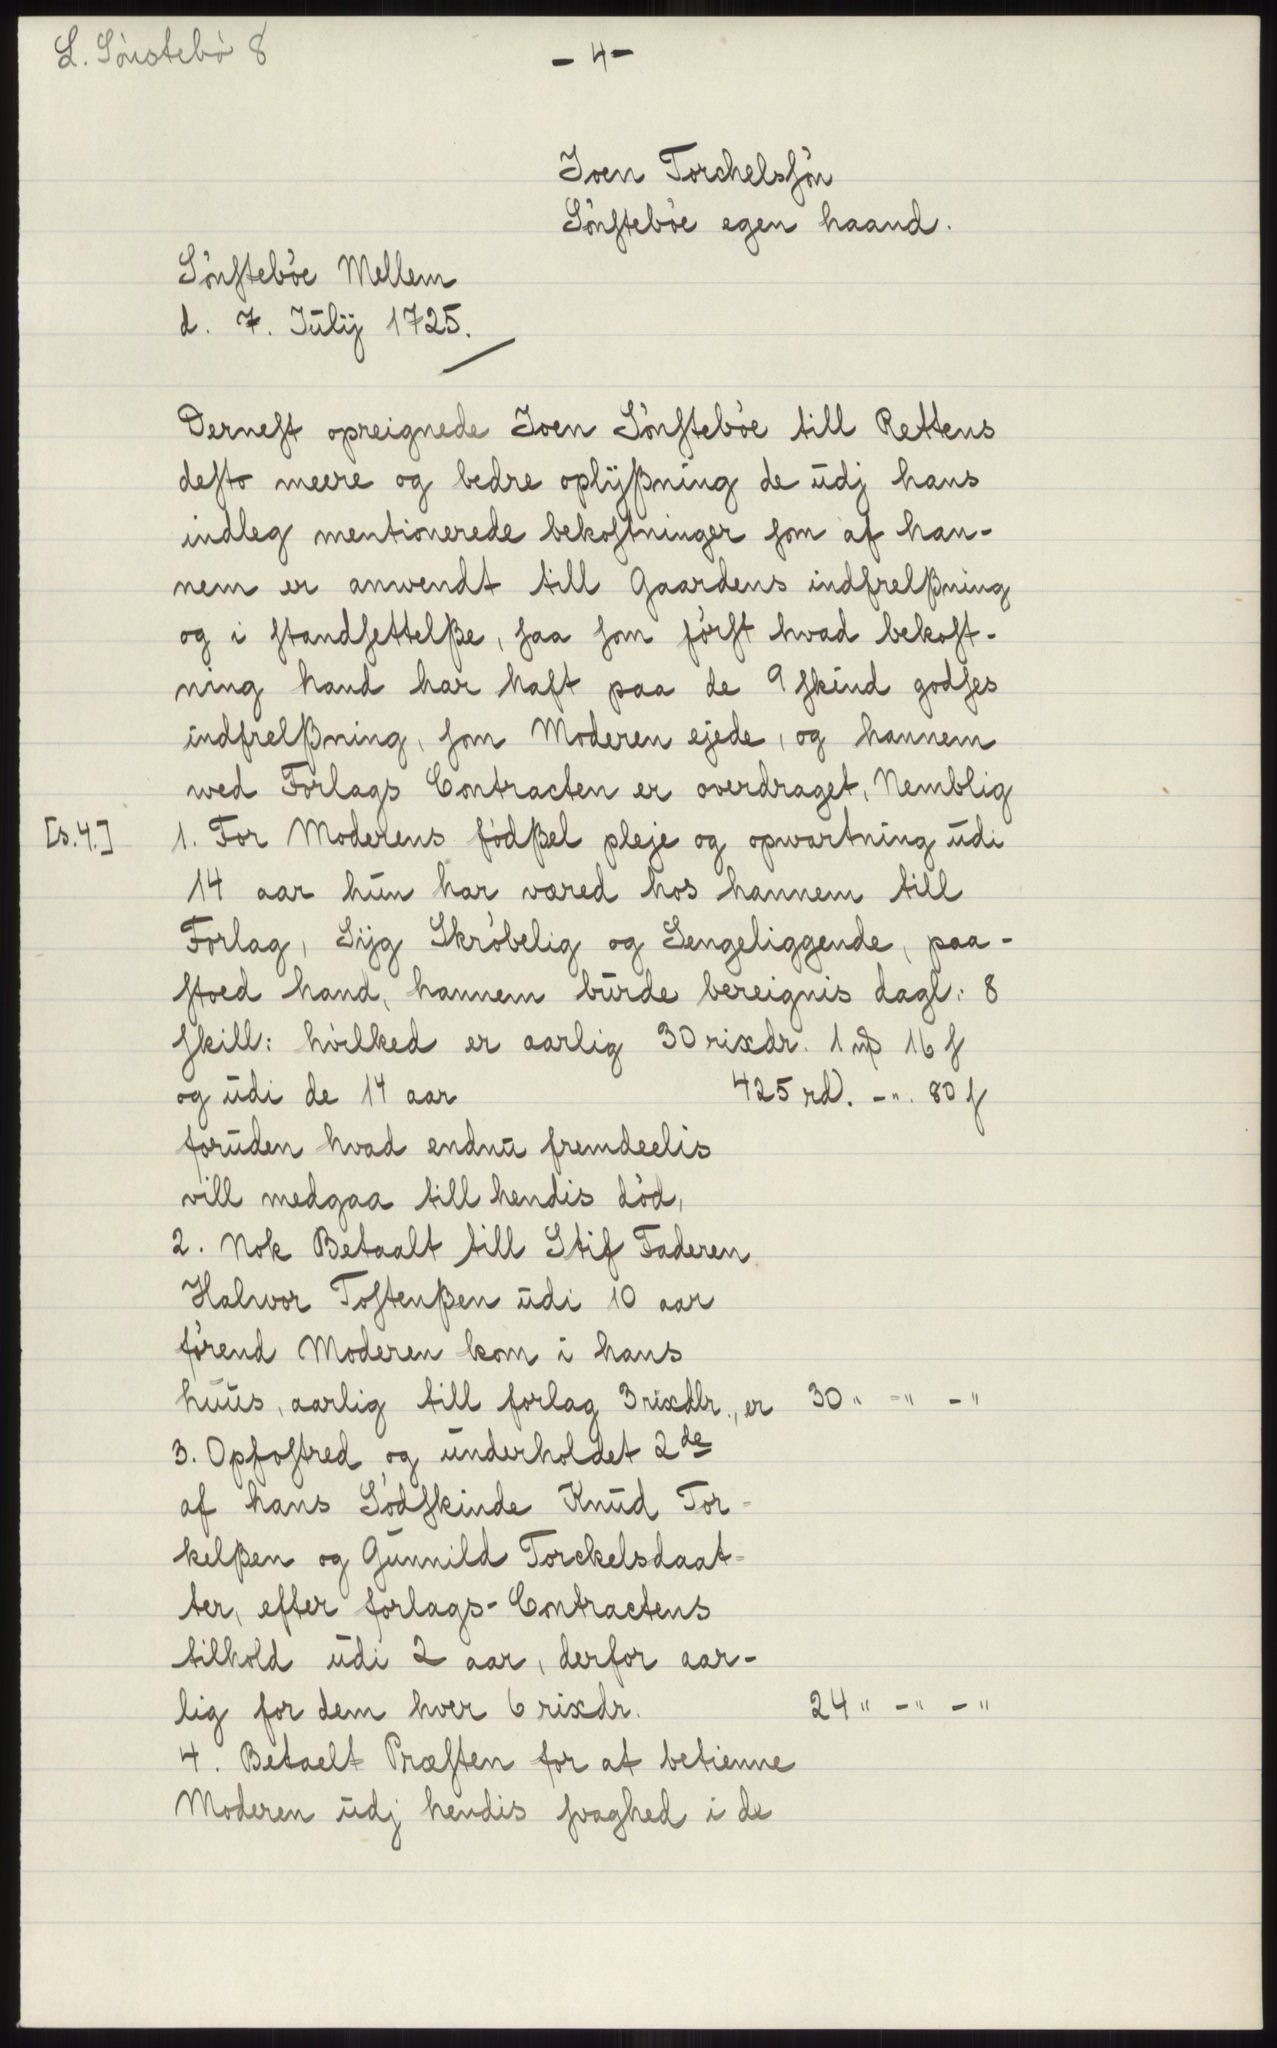 L. Sönstebö 8
- 4 -
Joen Torchelsſön
Sönſteböe egen haand.
Sönſteböe Mellem
d. 7. Julij 1725.
Derneſt opreignede Joen Sönſteböe till Rettens
deſto meere og bedre oplÿßning de udj hans
indleg mentionerede bekoſtninger ſom af han-
nem er anwendt till Gaardens indfrelßning
og i ſtandſettelße, ſaa ſom förſt hvad bekoſt-
ning hand har haft paa de 9 ſkind godſes
indfrelßning, ſom Moderen ejede, og hannem
wed Forlags Contracten er overdraget, Nemblig
[s.4.] 1. For Moderens födßel pleje og opvartning udi
14 aar hun har væred hos hannem till
Forlag, Sÿg Skröbelig og Sengeliggende, paa-
ſtoed hand, hannem burde bereignis dagl: 8
ſkill: hvilked er aarlig 30 rixdr. 1 mſ 16 ſ
og udi de 14 aar 425 rd. -". 80 ſ
foruden hvad endnu fremdeelis
vill medgaa till hendis död,
2. Nok Betaalt till Stif Faderen
Halvor Toſtenßen udi 10 aar
förend Moderen kom i hans
huus, aarlig till forlag 3 rixdlr., er 30 " -" -"
3. Opfoſtred og underholdet 2de
af hans Södſkinde Knud Tor-
kelßen og Gunnild Torckelsdaat-
ter, efter forlags-Contractens
tilhold udi 2 aar, derfor aar-
lig for dem hver 6 rixdr. 24 " -" -"
4. Betaelt Præſten for at betienne
Moderen udj hendis ſvaghed i de